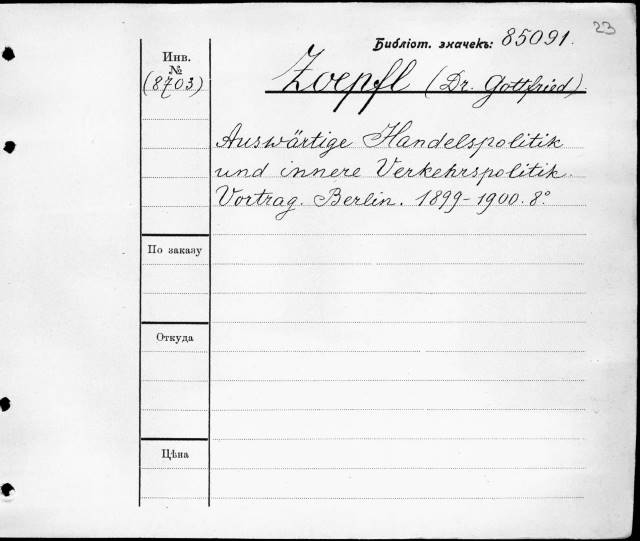 23
Библіот. значекъ: 85091.
Инв.
№
(8703)
Zoepfl (Dr. Gottfried).
Auswärtige Handelspolitik
und innere Verkehrspolitik.
Vortrag. Berlin. 1899-1900. 8°.
По заказу
Откуда
Цѣна